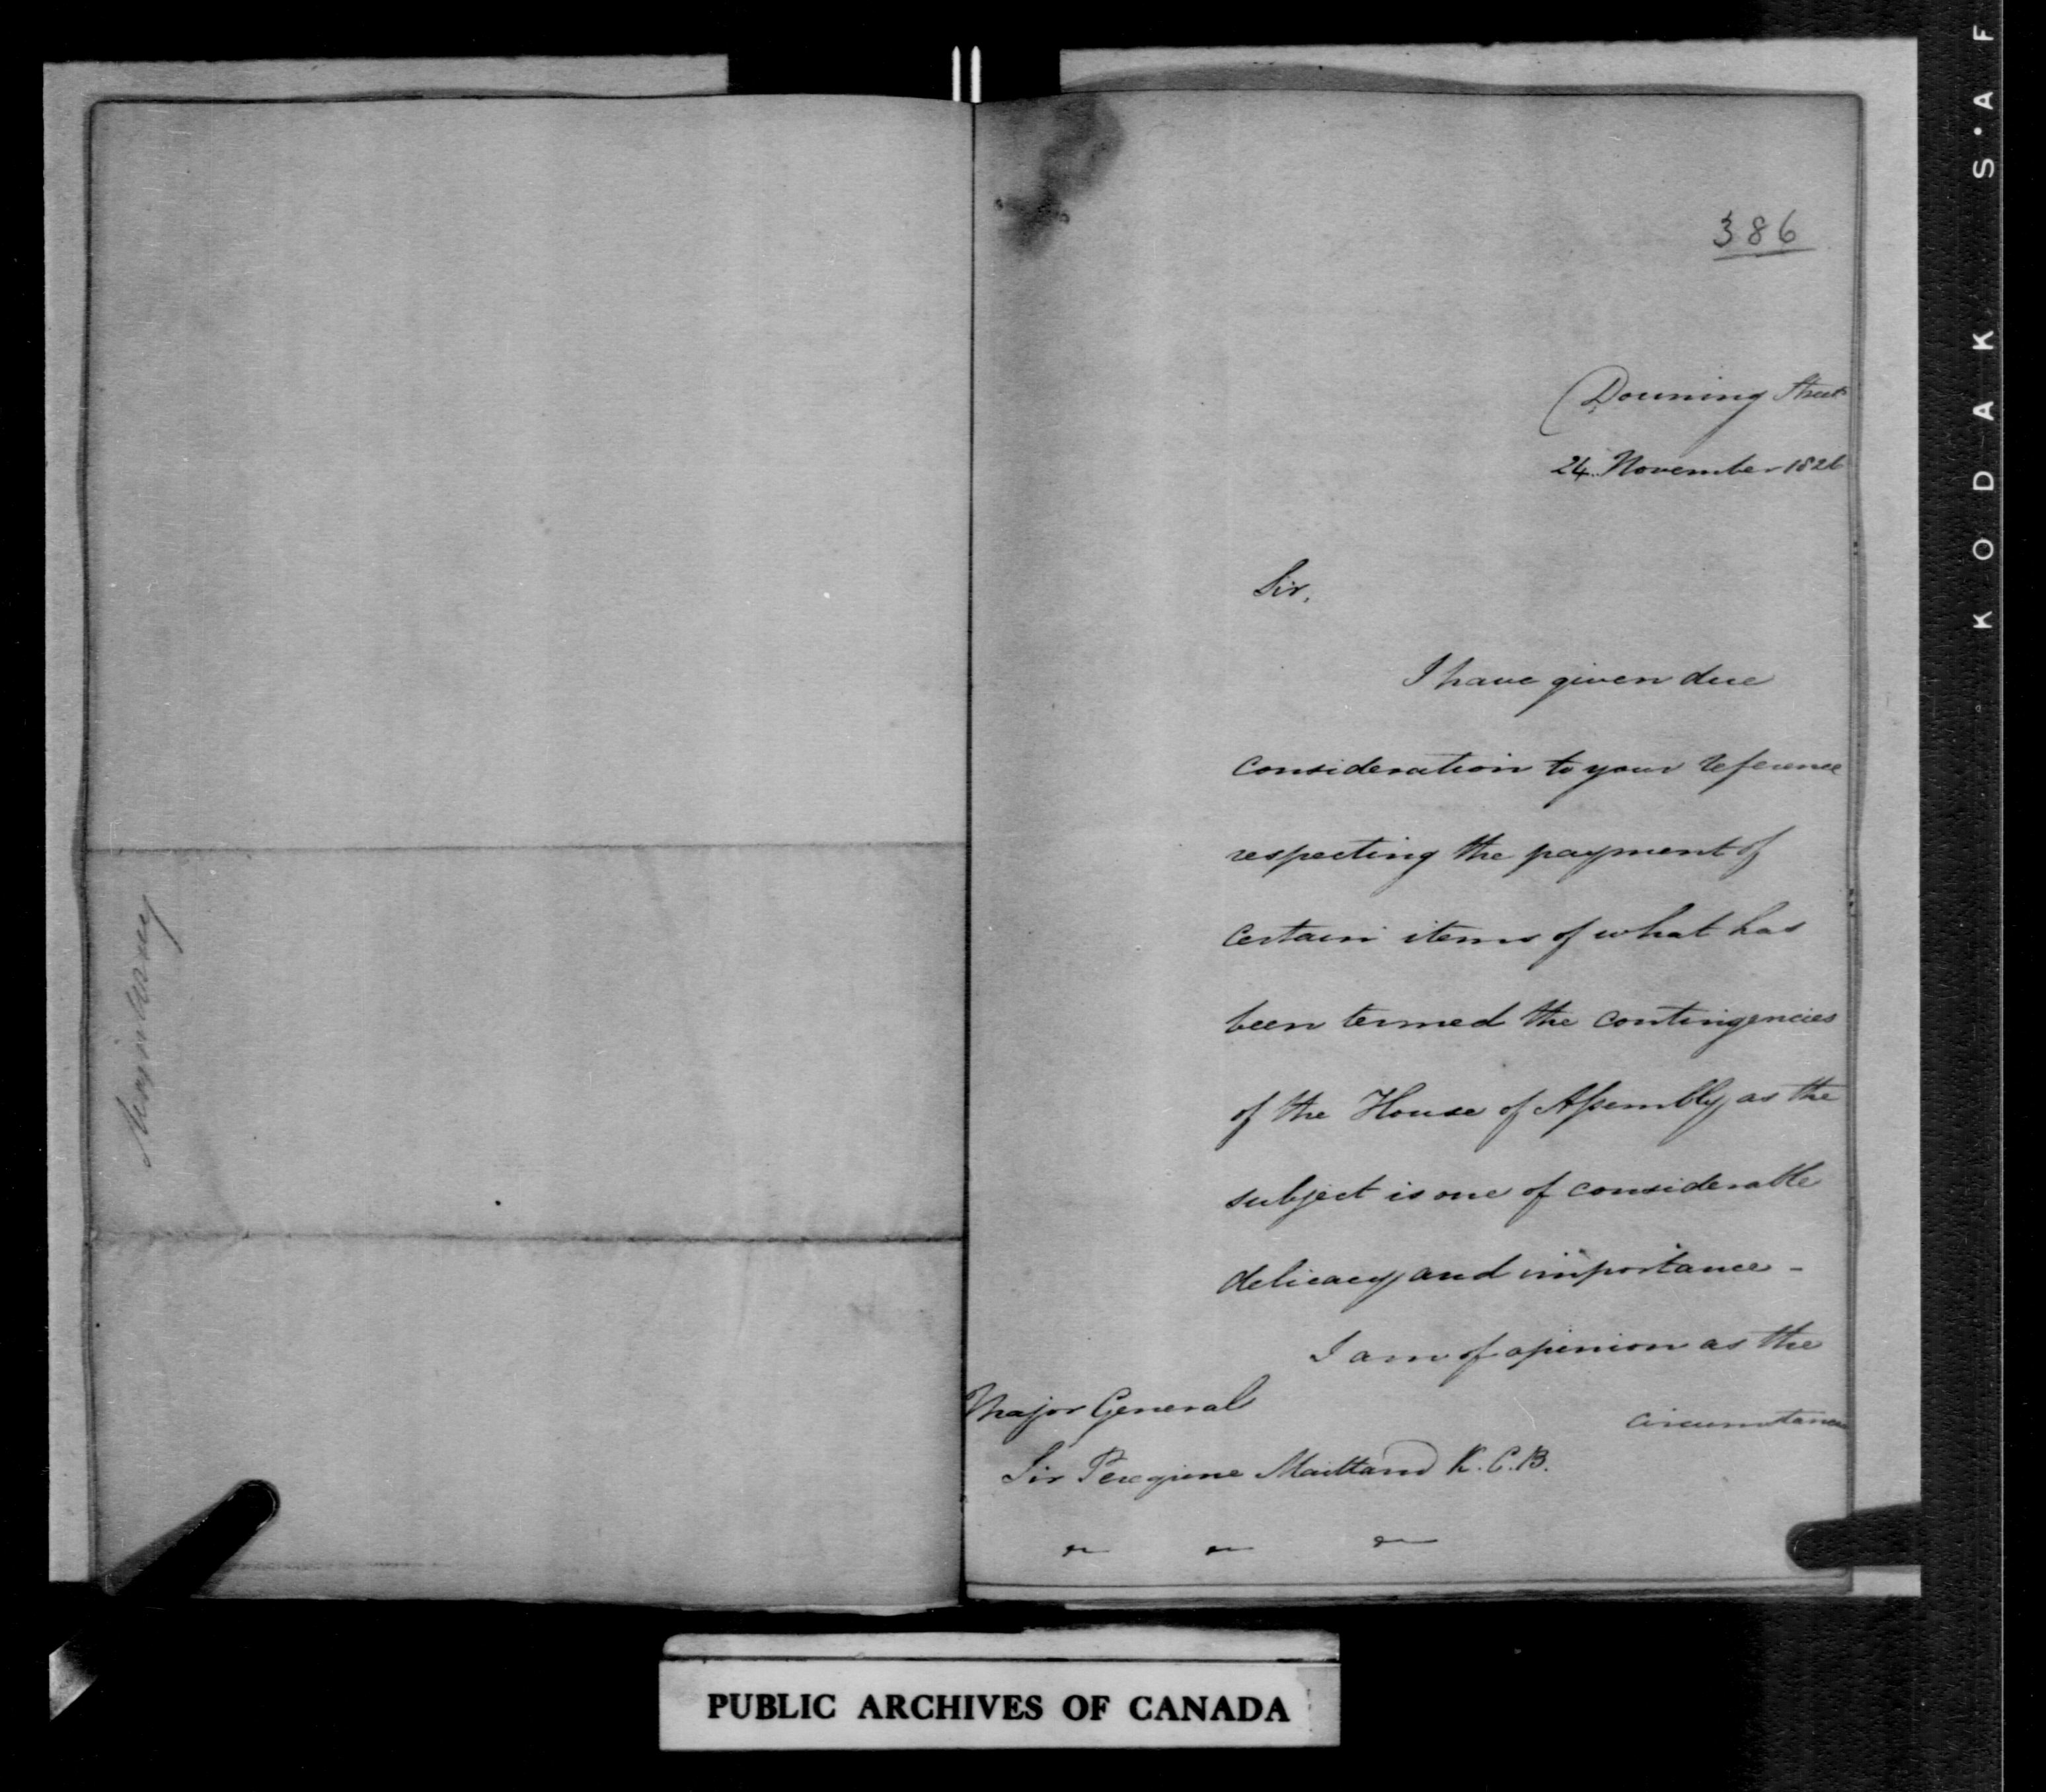 386
Downing Street
24 November 1826
Sir,
I have given due
consideration to your reference
respecting the payment of
certain items of what has
been termed the contingencies
of the House of Assembly, as the
subject is one of considerable
delicacy and importance -
I am of opinion as the
circumstances
Major General
Sir Peregrine Maitland K.C.B.
PUBLIC ARCHIVES OF CANADA
KODAK S·AF